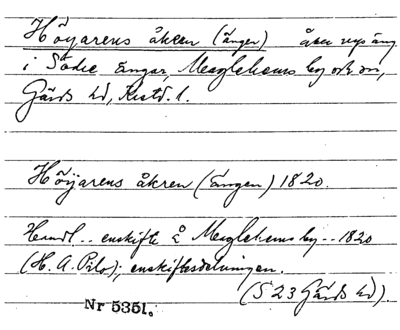 Höyarens åkren (ängen) åker resp äng
i Södre ängar, Maglehems by och sn,
Gärds hd, Krstd. l.
Höijarens åkren (Ängen) 1820.
Handl.. enskifte å Maglehems by.. 1820
(H. A. Pilo); enskiftesdelningen.
(S 23 Gärds hd).
Nr 5351.